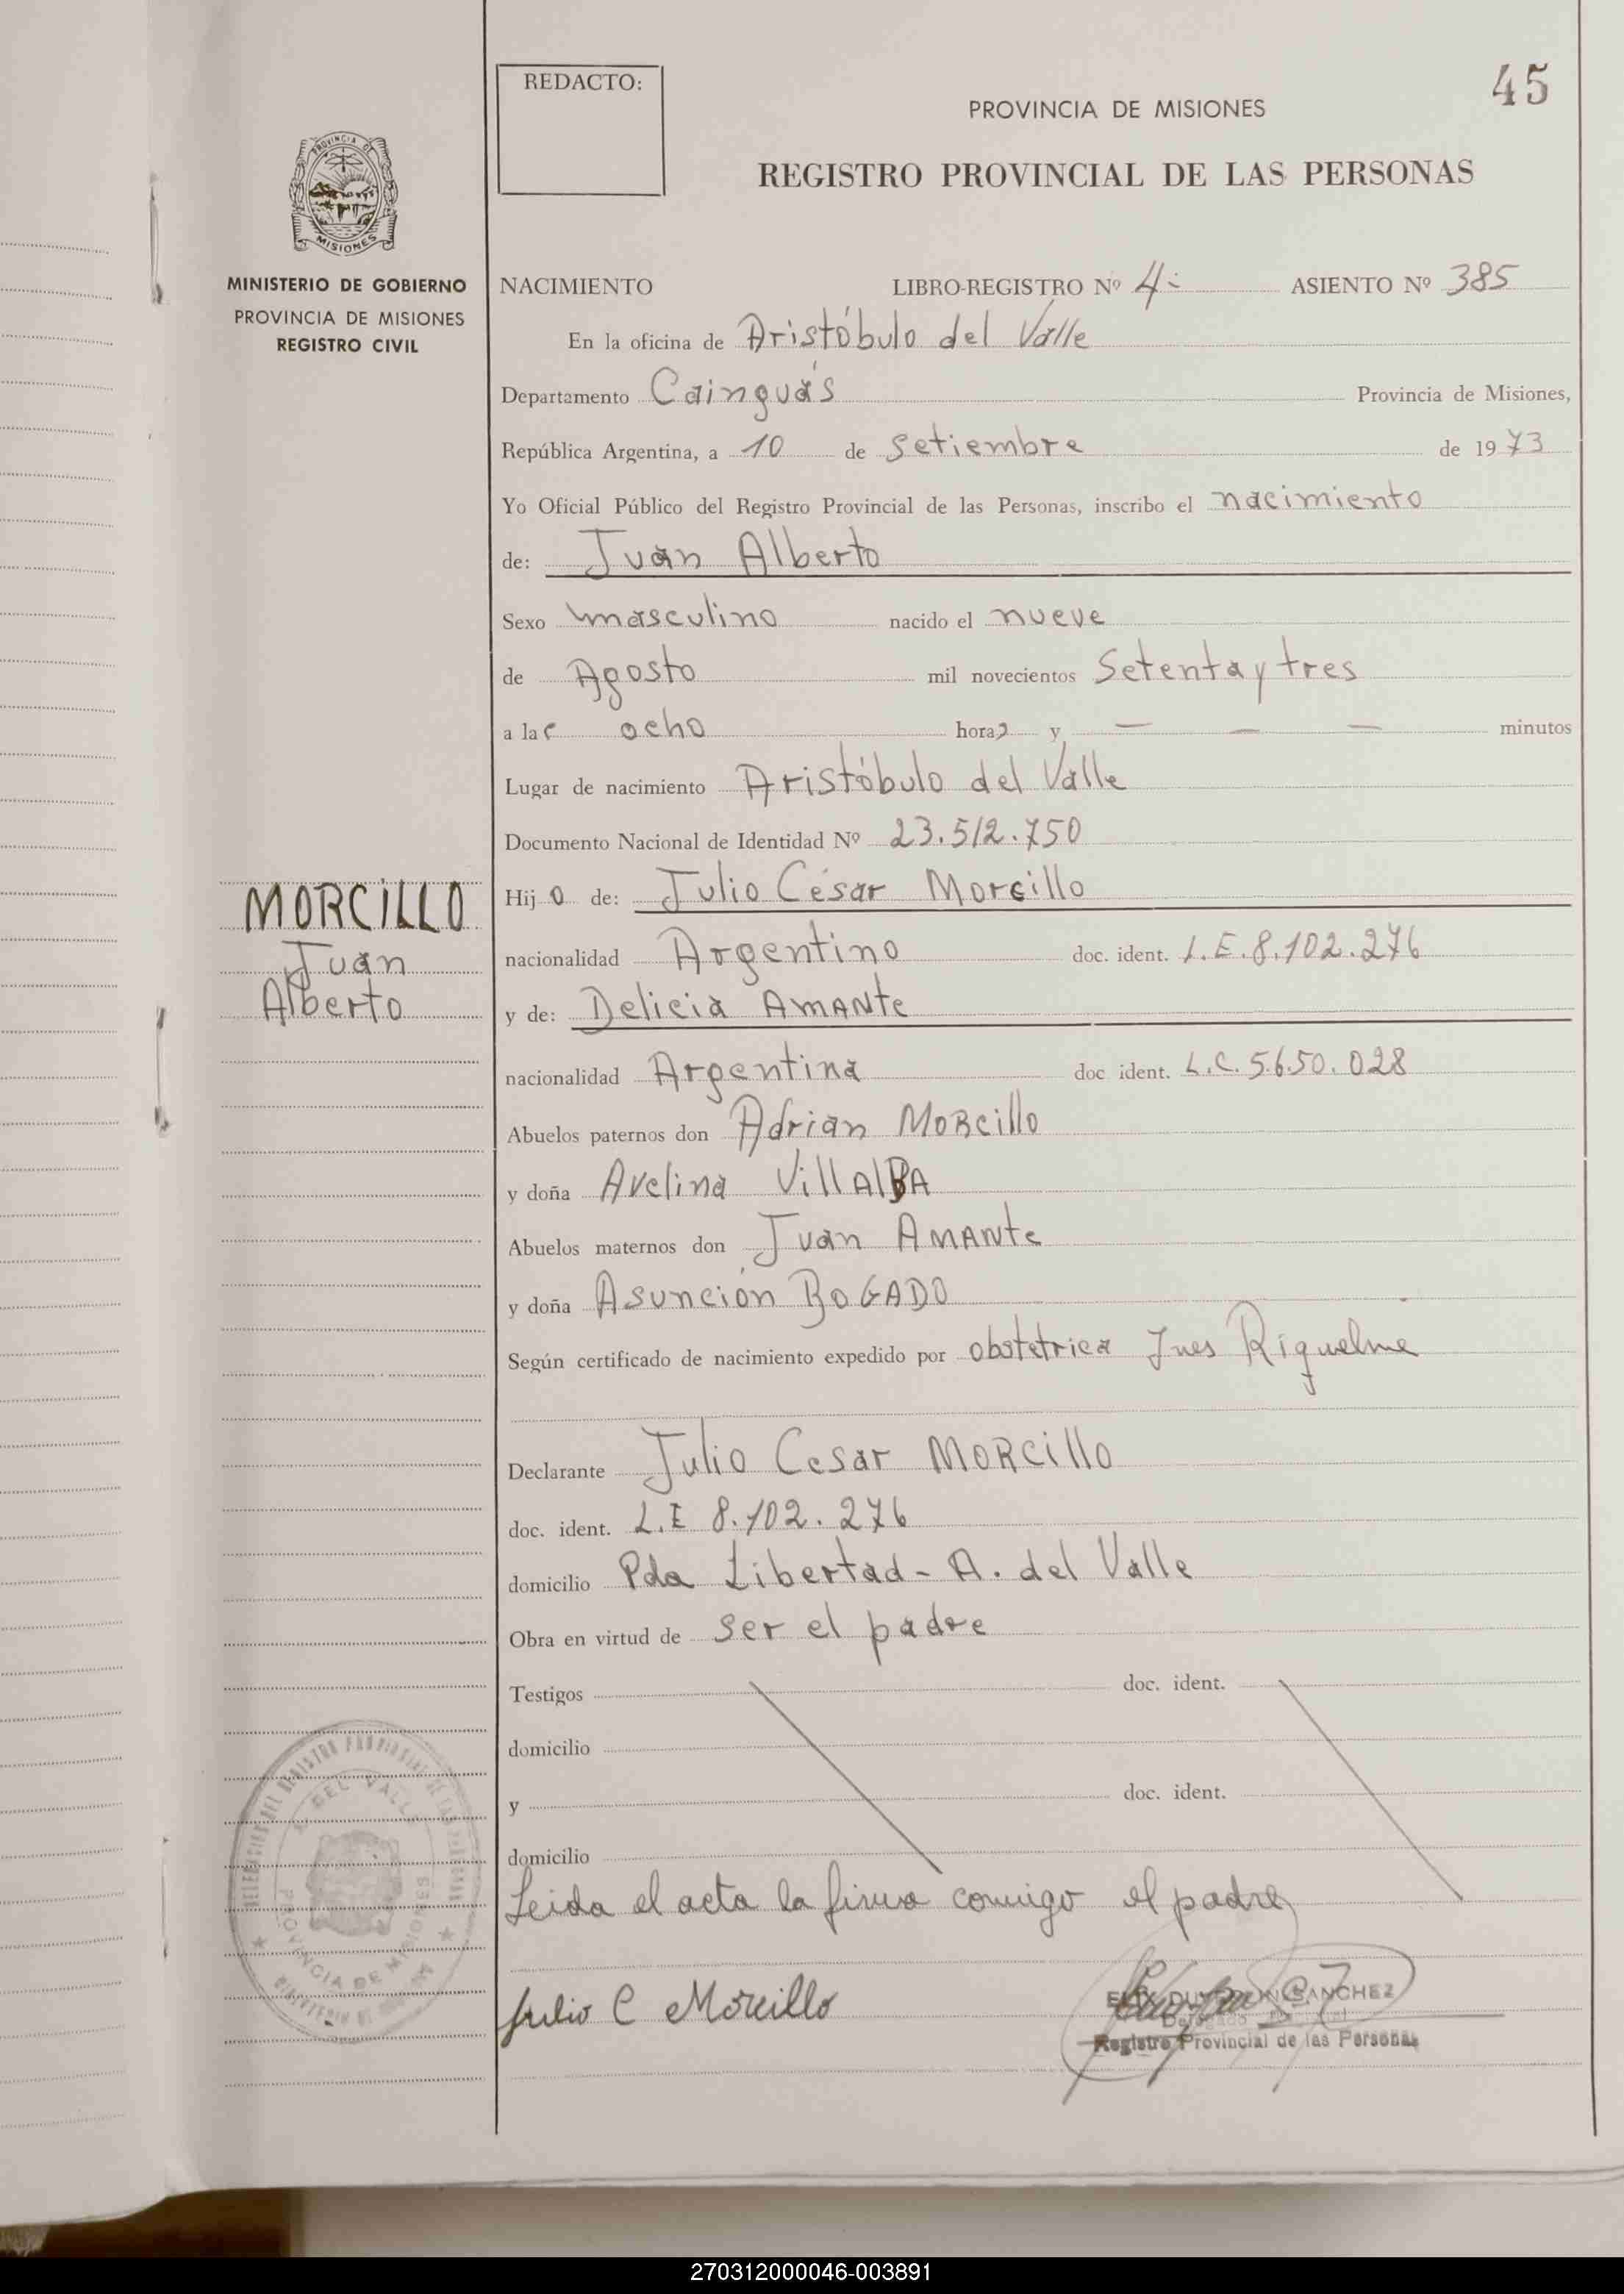 REDACTO:
45
PROVINCIA DE MISIONES
REGISTRO PROVINCIAL DE LAS PERSONAS
PROVINCIA DE
MISIONES
MINISTERIO DE GOBIERNO
PROVINCIA DE MISIONES
REGISTRO CIVIL
NACIMIENTO LIBRO-REGISTRO Nº 4 ASIENTO Nº 385
En la oficina de Aristóbulo del Valle
Departamento Cainguás Provincia de Misiones,
República Argentina, a 10 de setiembre de 1973
Yo Oficial Público del Registro Provincial de las Personas, inscribo el nacimiento
de: Juan Alberto
Sexo masculino nacido el nueve
de Agosto mil novecientos Setenta y tres
a las ocho horas y — — — minutos
Lugar de nacimiento Aristóbulo del Valle
Documento Nacional de Identidad Nº 23.512.750
Hijo de: Julio César Morcillo
nacionalidad Argentino doc. ident. L.E.8.102.276
y de: Delicia AMANte
nacionalidad Argentina doc ident. L.C.5.650.028
Abuelos paternos don Adrian MORcillo
y doña Avelina VillAlBA
Abuelos maternos don Juan AMANte
y doña Asunción BOGADO
Según certificado de nacimiento expedido por obstetrica Ines Riquelme
Declarante Julio Cesar MORCillo
doc. ident. L.E 8.102.276
domicilio Pda Libertad - A. del Valle
Obra en virtud de ser el padre
Testigos doc. ident.
domicilio
y doc. ident.
domicilio
Leida el acta la firma conmigo el padre
Julio C Morcillo
SANCHEZ
Registro Provincial de las Personas
MORCILLO
Juan
Alberto
DEL REGISTRO PROVINCIAL DE LAS PERSONAS
DEL VALLE
PROVINCIA DE MISIONES
270312000046-003891